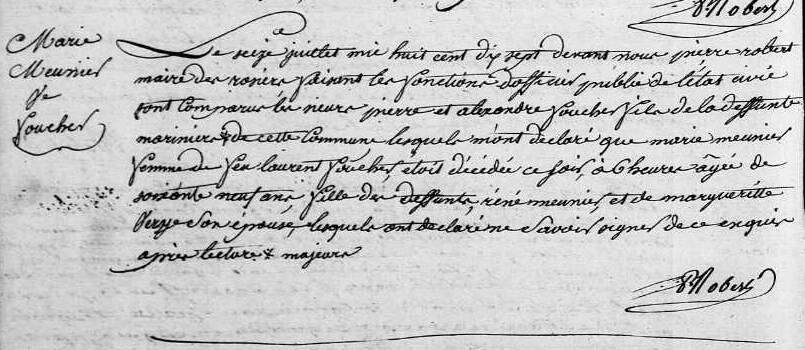 P Robert
Marie
Meunier
fe
foucher
Le seize juillet mil huit cent dix sept devant nous pierre robert
maire des rosiers faisant les fonctions d'officier publié de l'état civil
sont comparus les sieurs pierre et alexandre foucher fils de la deffunte
mariniers de cette commune lesquels m'ont déclaré que marie meunier
femme de feu laurent foucher étoit décédée ce soir, à 6 heures âgée de
soixante neuf ans fille des deffunts, réné meunier, et de margueritte
son épouse, lesquels ont declaré ne savoir signer de ce enquis
après lecture & majeurs
P Robert